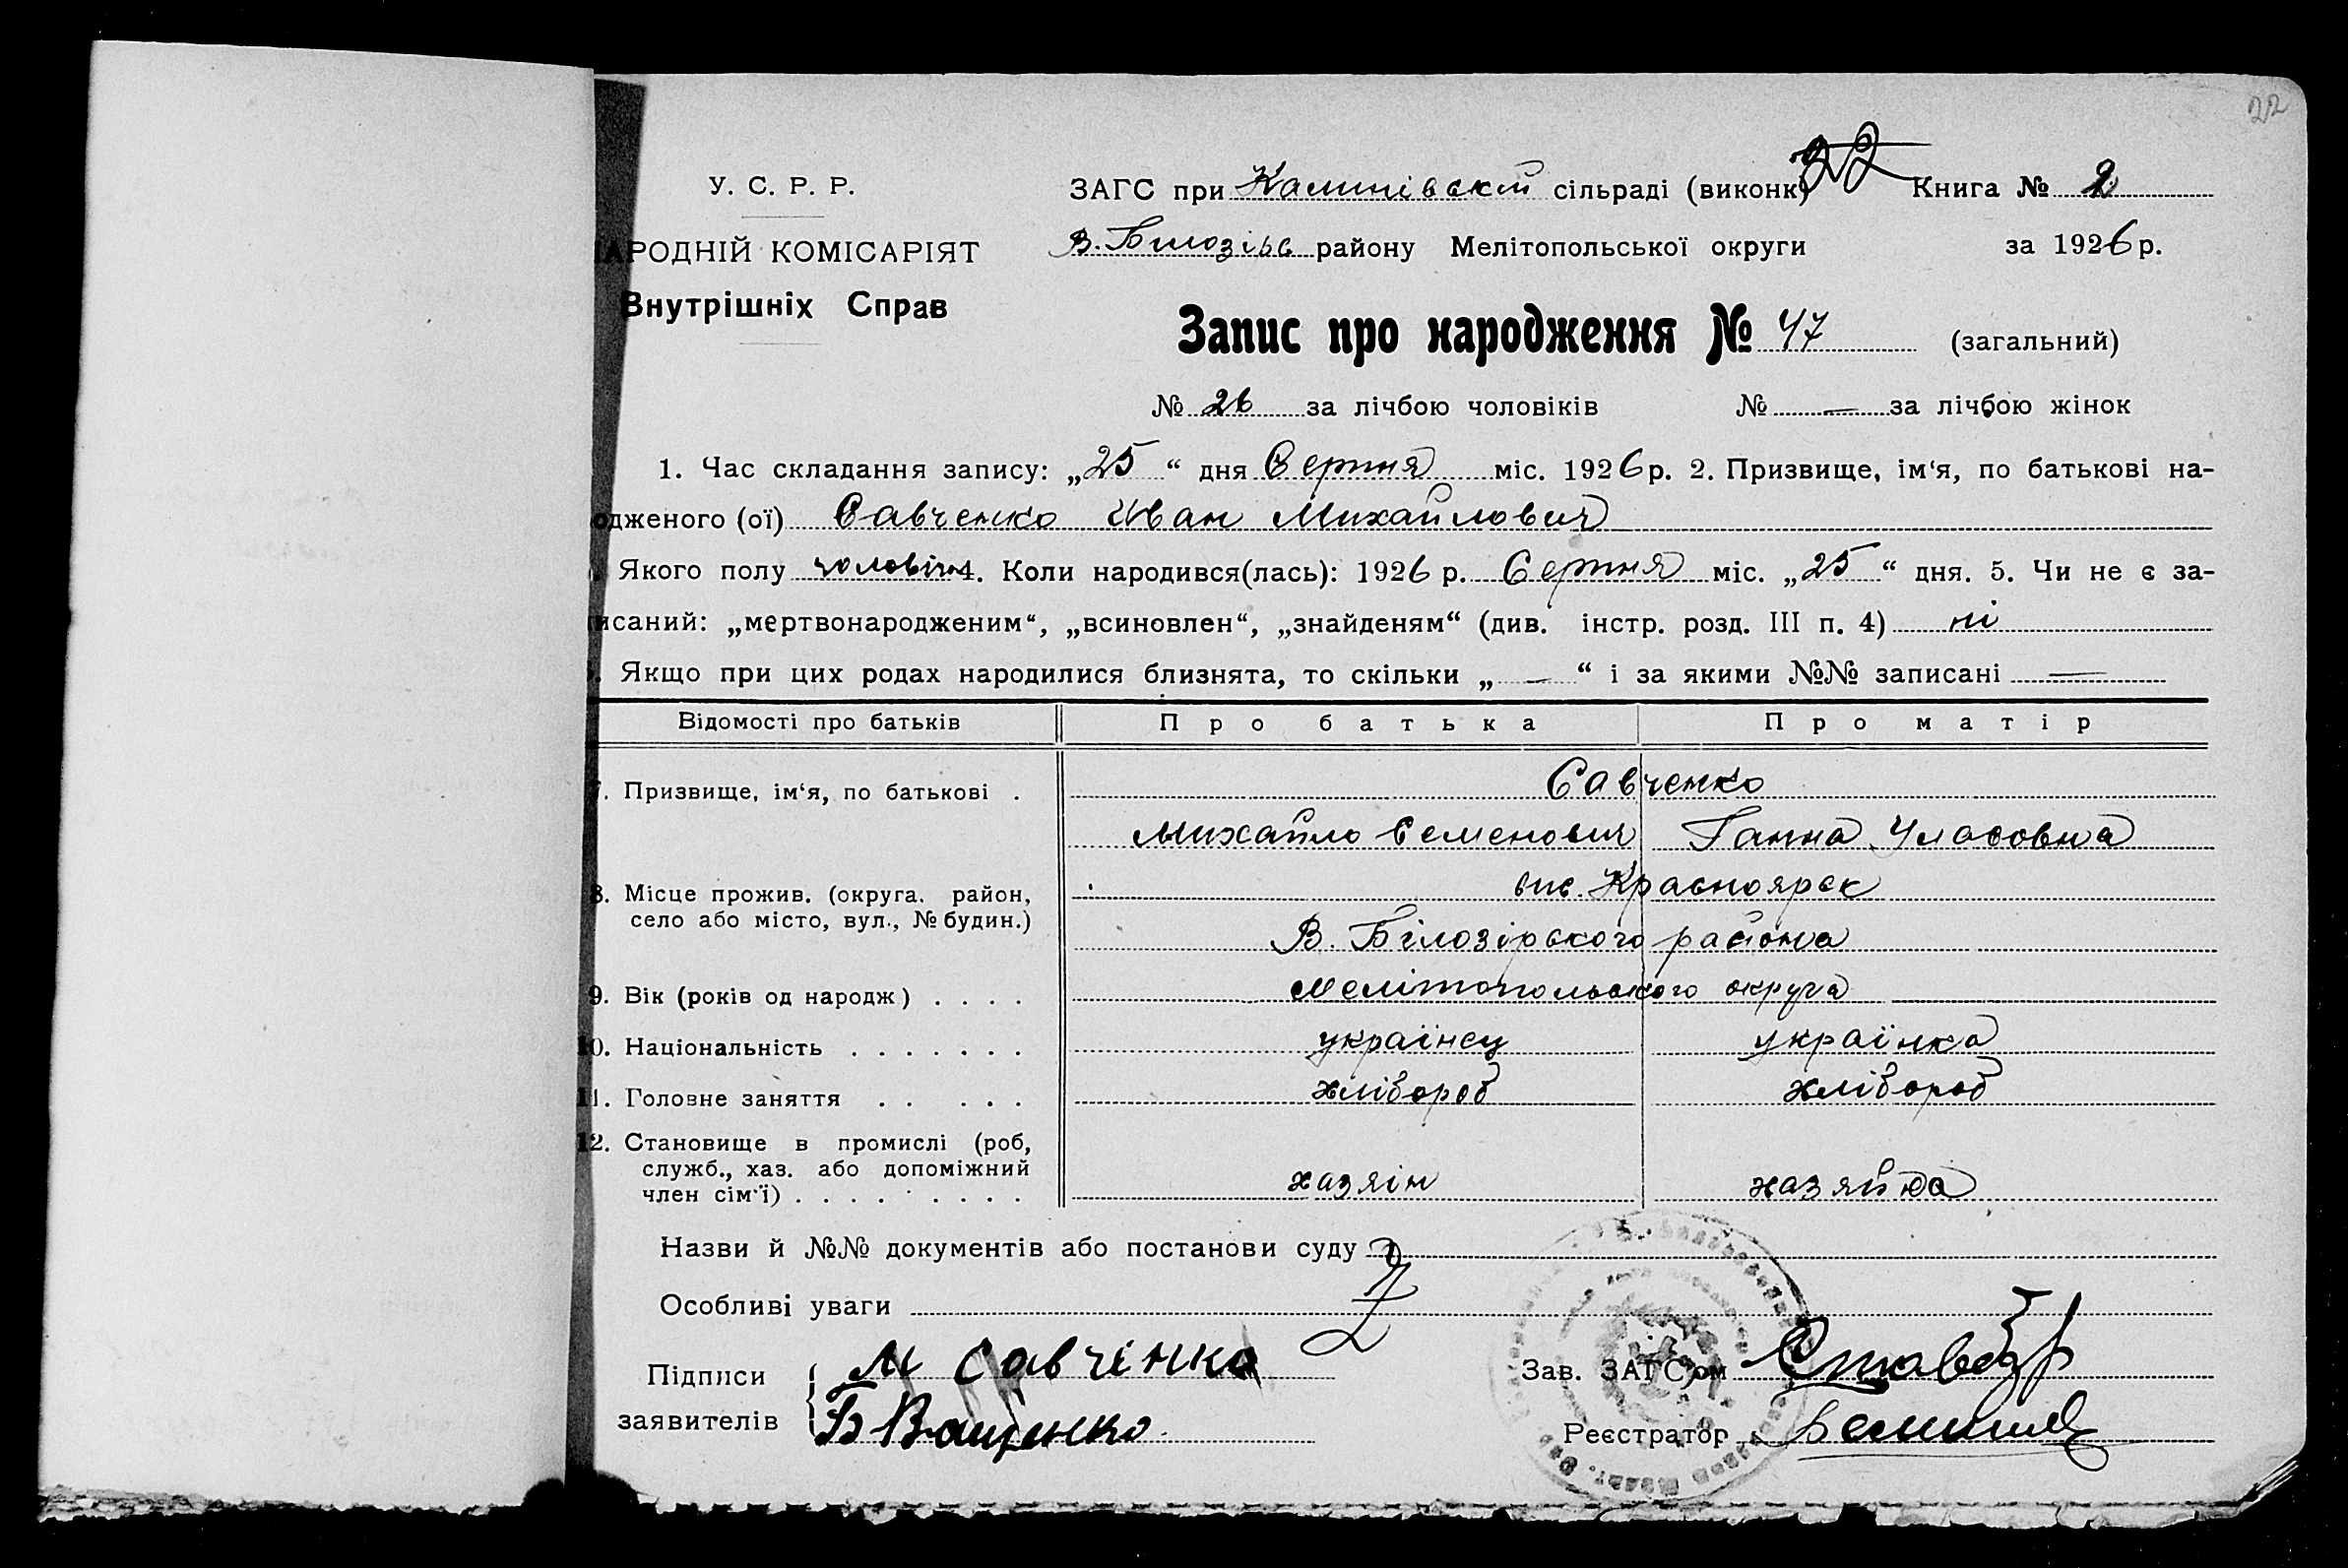 22
У. С. Р. Р.
ЗАГС при Калинівській сільраді (виконк) Книга № 2
АРОДНІЙ КОМІСАРІЯТ
В. Білозірь району Мелітопольської округи за 1926 р.
Внутрішніх Справ
Запис про народження № 47 (загальний)
№ 26 за лічбою чоловіків № — за лічбою жінок
1. Час складання запису: „25“ дня Серпня міс. 1926 р. 2. Призвище, ім‘я, по батькові на-
одженого (ої) Савченко Иван Михайлович
Якого полу чоловіч 4. Коли народився(лась): 1926 р. Серпня міс. „25“ дня. 5. Чи не є за-
исаний: „мертвонародженим“, „всиновлен“, „знайденям“ (див. інстр. розд. III п. 4) ні
. Якщо при цих родах народилися близнята, то скільки „—“ і за якими №№ записані —
Відомості про батьків Про батька Про матір
7. Призвище, ім‘я, по батькові . Савченко
Михайло Семенович Ганна Уласовна
8. Місце прожив. (округа. район, вис. Красноярск
село або місто, вул., № будин.) В. Білозірського района
9. Вік (років од народж) . . . . Мелітопольського округа
10. Національність . . . . . . . українец українка
11. Головне заняття . . . . . хлібороб хлібороб
12. Становище в промислі (роб,
служб., хаз. або допоміжний
член сім‘ї) . . . . . . . . . хазяін хазяйка
Назви й №№ документів або постанови суду
Особливі уваги
Підписи М Савченко Зав. ЗАГС‘ом
заявителів Б Ващенко Реєстратор